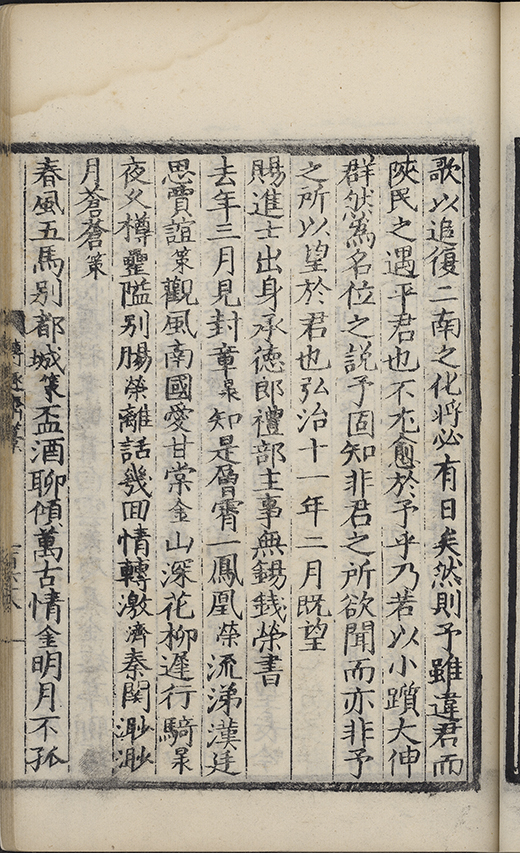 歌以追復二南之化將必有日矣然則予雖違君而
陝民之遇乎君也不尤愈於予乎乃若以小躓大伸
群然為名位之說予固知非君之所欲聞而亦非予
之所以望於君也弘治十一年二月既望
賜進士出身承德郎禮部主事無錫錢榮書
去年三月見封章杲知是層霄一鳳凰榮流涕漢廷
思賈誼策觀風南國愛甘棠金山深花柳遲行騎杲
夜久樽罍隘別腸榮離話幾回情轉激濟秦関渺渺
月蒼蒼策
春風五馬別都城策盃酒聊傾萬古情金明月不孤